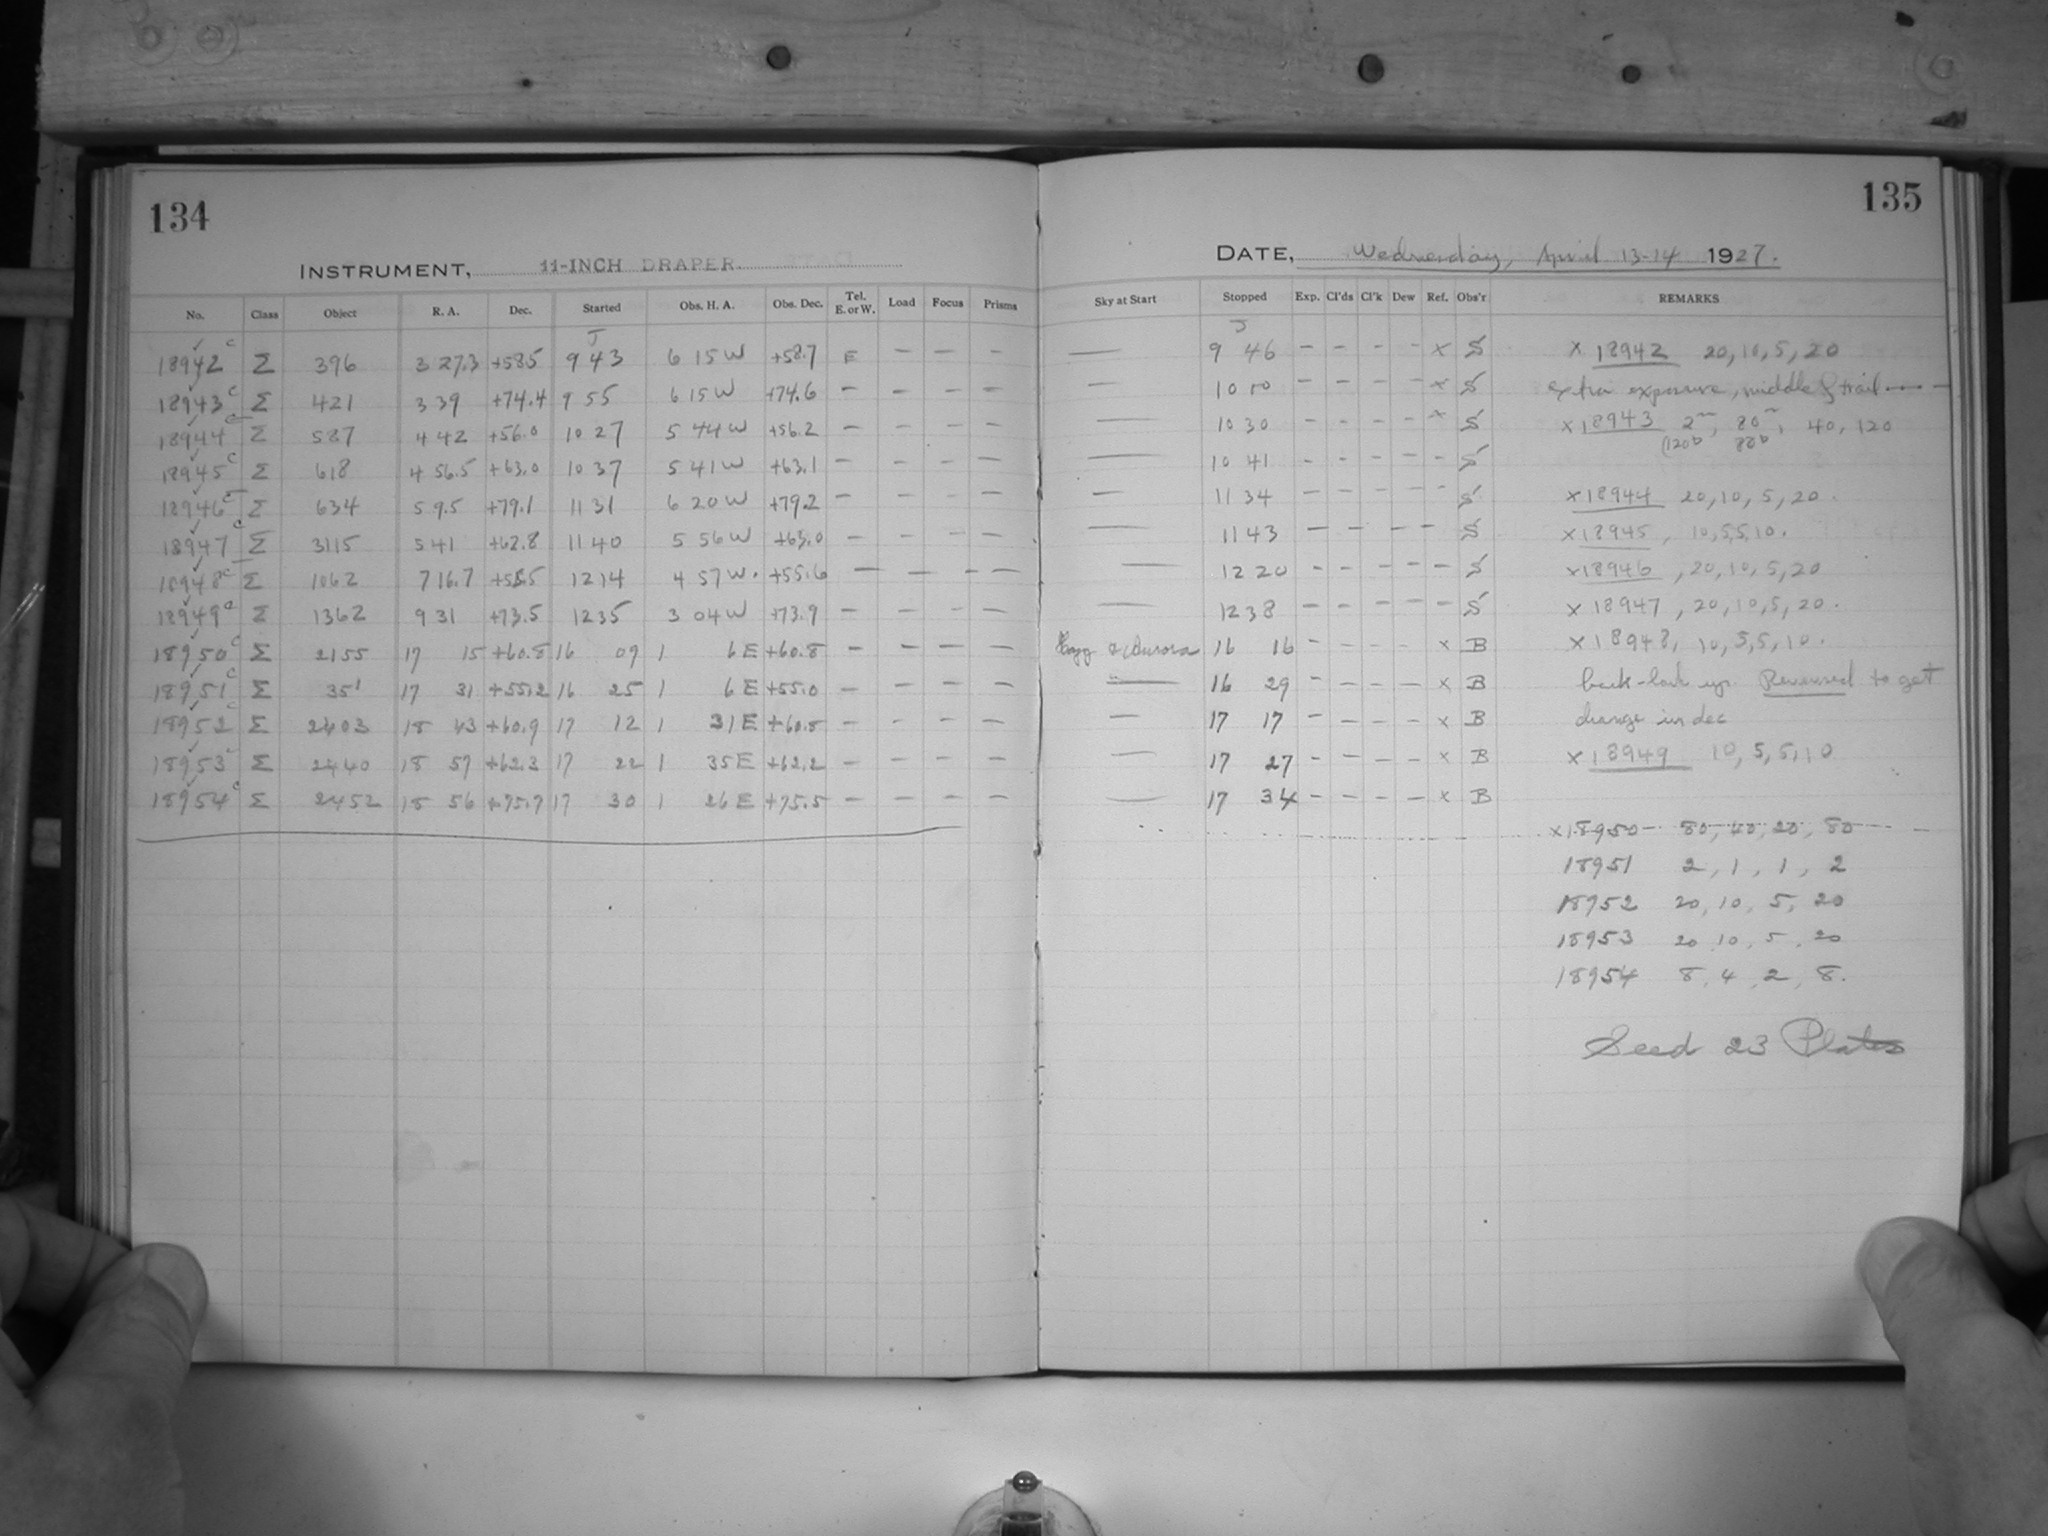 134
INSTRUMENT, 11-INCH DRAPER
No. Class Object R. A. Dec. Started Obs. H. A. Obs. Dec. Tel. E. or W. Load Focus Prisms
J
18942 c Σ 396 3 27.3 +58.5 9 43 6 15 W +58.7 E — — —
18943 c Σ 421 3 39 +74.4 9 55 6 15 W +74.6 — — — —
18944 c Σ 587 4 42 +56.0 10 27 5 44 W +56.2 — — — —
18945 c Σ 618 4 56.5 +63.0 10 37 5 41 W +63.1 — — — —
18946 c Σ 634 5 9.5 +79.1 11 31 6 20 W +79.2 — — — —
18947 c Σ 3115 5 41 +62.8 11 40 5 56 W +63.0 — — — —
18948 c Σ 1062 7 16.7 +55.5 12 14 4 57 W. +55.6 — — — —
18949 c Σ 1362 9 31 +73.5 12 35 3 04 W +73.9 — — — —
18950 c Σ 2155 17 15 +60.8 16 09 1 6 E +60.8 — — — —
18951 c Σ 351 17 31 +55.2 16 25 1 6 E +55.0 — — — —
18952 c Σ 2403 18 43 +60.9 17 12 1 31 E +60.8 — — — —
18953 c Σ 2440 18 57 +62.3 17 22 1 35 E +62.2 — — — —
18954 c Σ 2452 18 56 +75.7 17 30 1 26 E +75.5 — — — —
135
DATE, Wednesday, April 13-14 1927.
Sky at Start Stopped Exp. Cl'ds Cl'k Dew Ref. Obs'r REMARKS
J
— 9 46 — — — — x S x 18942 20, 10, 5, 20
— 10 00 — — — — x S extra exposure, middle of trail
— 10 30 — — — — x S x 18943 2m, 80m, 40, 120
(120b 80b
— 10 41 — — — — — S
— 11 34 — — — — — S x 18944 20, 10, 5, 20.
— 11 43 — — — — S x 18945, 10, 5, 5, 10.
— 12 20 — — — — — S x 18946, 20, 10, 5, 20
— 12 38 — — — — — S x 18947, 20, 10, 5, 20.
Hazy & Aurora 16 16 — — — — x B x 18948, 10, 5, 5, 10.
— 16 29 — — — — x B back-lash up. Reversed to get
— 17 17 — — — — x B change in dec
— 17 27 — — — — x B x 18949 10, 5, 5, 10
— 17 34 — — — — x B
x 18950 — 80, 40, 20, 80
18951 2, 1, 1, 2
18952 20, 10, 5, 20
18953 20, 10, 5, 20
18954 8, 4, 2, 8.
Seed 23 Plates